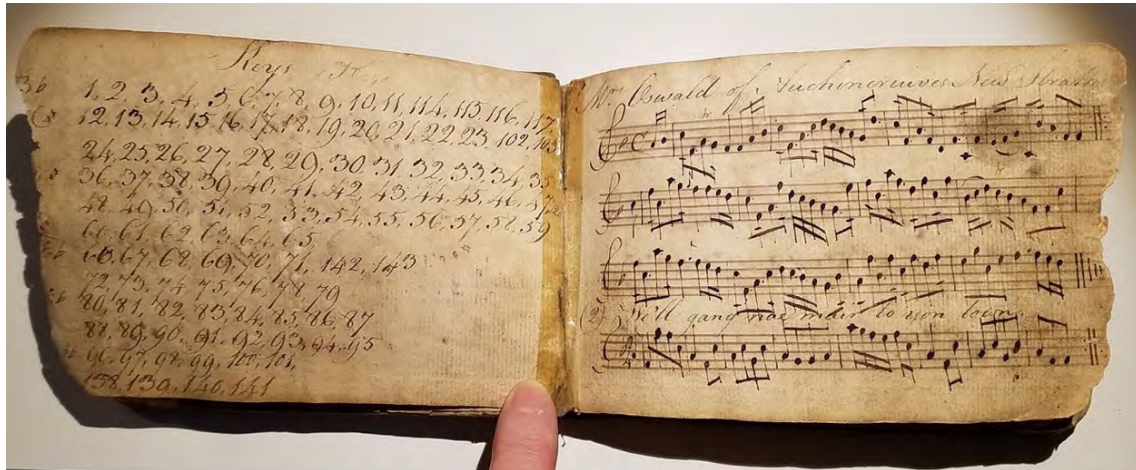 Keys
1, 2, 3, 4, 5, 6, 7, 8, 9, 10, 11, 114, 115, 116, 117,
12, 13, 14, 15, 16, 17, 18, 19, 20, 21, 22, 23, 102, 103
24, 25, 26, 27, 28, 29, 30, 31, 32, 33, 34, 35
36, 37, 38, 39, 40, 41, 42, 43, 44, 45, 46, 47
48, 49, 50, 51, 52, 53, 54, 55, 56, 57, 58, 59
60, 61, 62, 63, 64, 65
66, 67, 68, 69, 70, 71, 142, 143
72, 73, 74, 75, 76, 78, 79
80, 81, 82, 83, 84, 85, 86, 87
88, 89, 90, 91, 92, 93, 94, 95
96, 97, 98, 99, 100, 101,
138, 139, 140, 141
Mrs Oswald of Auchincruives New Strath
(2) I'll gang nae mair to yon toun